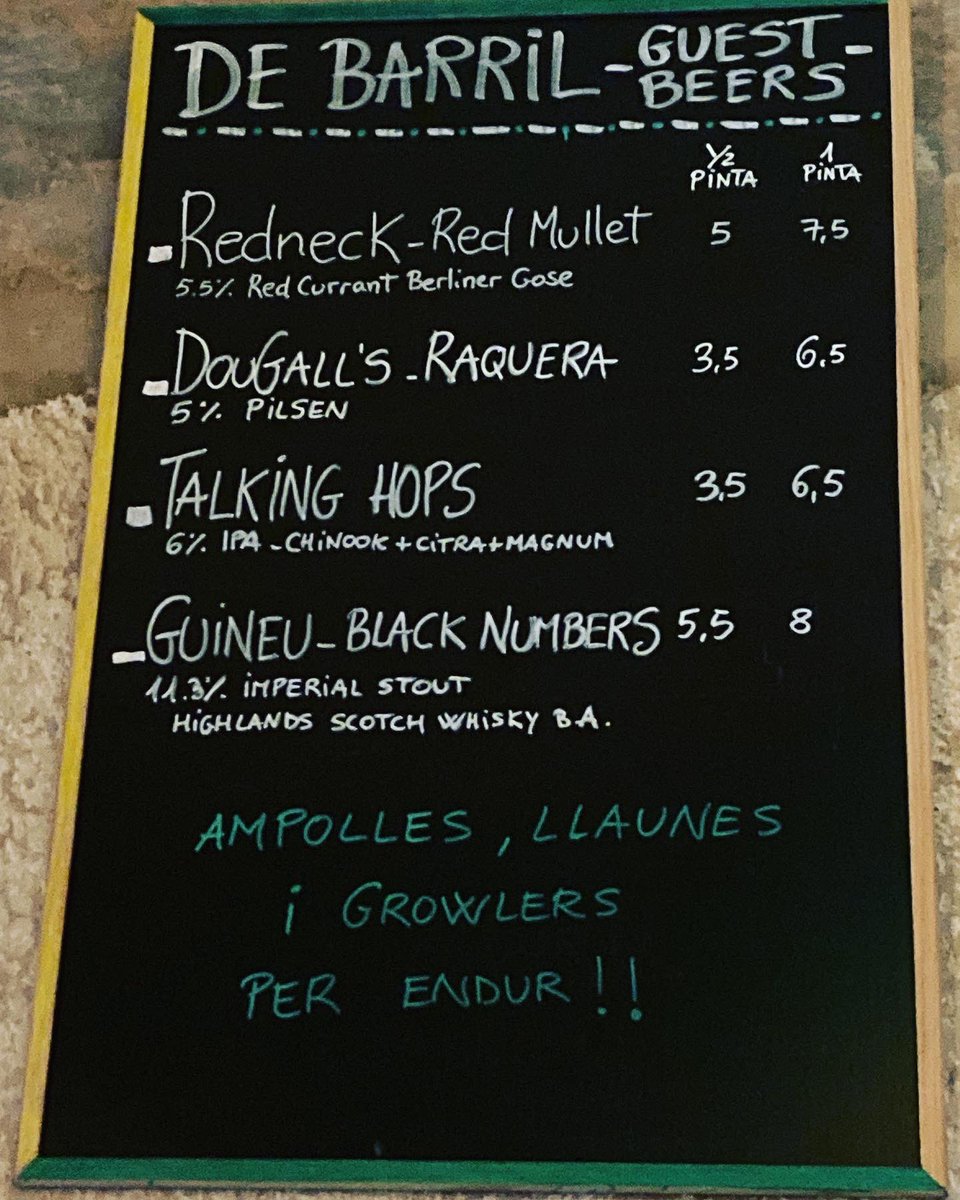 DE BARRiL - GUEST BEERS -
1/2 PiNTA 1 PiNTA
Redneck - Red Mullet 5 7,5
5.5% Red Currant Berliner Gose
DOUGALL'S - RAQUERA 3,5 6.5
5% PiLSEN
TALKiNG HOPS 3,5 6,5
6% IPA - CHiNOOK + CiTRA + MAGNUM
GUiNEU - BLACK NUMBERS 5,5 8
11.3% iMPERiAL STOUT
HiGHLANDS SCOTCH WHiSKY B.A.
AMPOLLES, LLAUNES
i GROWLERS
PER ENDUR!!